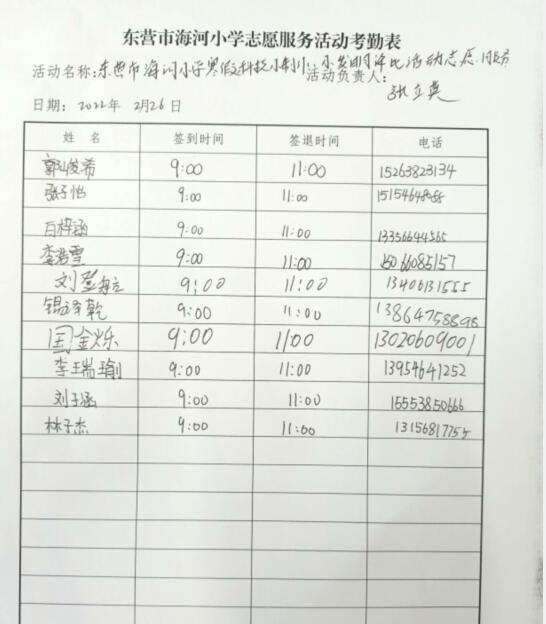 东营市海河小学志愿服务活动考勤表
活动名称：东营市海河小学寒假科技小制作、小发明评比活动志愿服务
活动负责人：
张立英
日期：2022年2月26日
姓 名 签到时间 签退时间 电话
郭峻希 9:00 11:00 15263823134
张子怡 9:00 11:00
白梓涵 9:00 11:00 13356644565
李若雪 9:00 11:00 15066085157
刘 9:00 11:00 13406131555
锡泽乾 9:00 11:00 13864758898
国金烁 9:00 11:00 13020609001
李瑞瑜 9:00 11:00 13954641252
刘子涵 9:00 11:00 15553850666
林子杰 9:00 11:00 13156817755